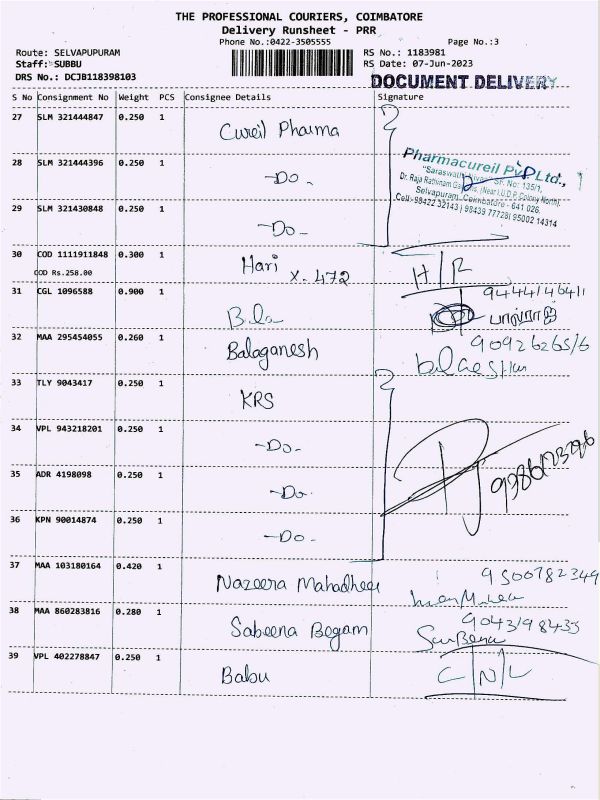 THE PROFESSIONAL COURIERS, COIMBATORE
Delivery Runsheet - PRR
Phone No.:0422-3505555 Page No.:3
Route: SELVAPUPURAM RS No.: 1183981
Staff: SUBBU RS Date: 07-Jun-2023
DRS No.: DCJB118398103
DOCUMENT DELIVERY
S No Consignment No Weight PCS Consignee Details Signature
27 SLM 321444847 0.250 1 Cureil Pharma
28 SLM 321444396 0.250 1 -Do-
Pharmacureil Pvt Ltd.,
"Saraswathi Nivas" SF. No: 135/1,
Dr. Raja Rathinam Gardens, (Near I.U.D.P. Colony North),
Selvapuram, Coimbatore - 641 026.
Cell: 98422 32143 | 98439 77728 | 95002 14314
29 SLM 321430848 0.250 1 -Do-
30 COD 1111911848 0.300 1 Hari X-472 H/R
COD Rs.258.00
31 CGL 1096588 0.900 1 Bala 9444146411
32 MAA 295454055 0.260 1 Balaganesh 9092626516
33 TLY 9043417 0.250 1 KRS
34 VPL 943218201 0.250 1 -Do-
35 ADR 4198098 0.250 1 -Do-
36 KPN 90014874 0.250 1 -Do-
37 MAA 103180164 0.420 1 Nazeera Mahadheer 9500782349
38 MAA 860283816 0.280 1 Sabeena Begam 9043198435
39 VPL 402278847 0.250 1 Babu C/N/L